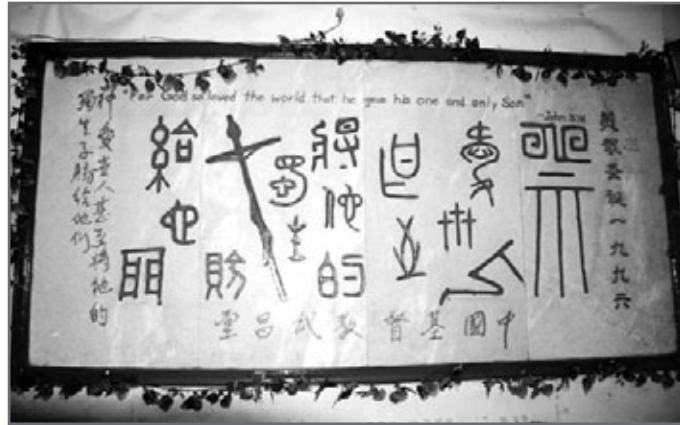 "For God so loved the world that he gave his one and only Son"
-John 3:16
慶祝聖誕一九九六
神
愛世人
甚至
將他的
獨生
子賜
給他們
神愛世人甚至將他的
獨生子賜給他們
中國基督教武昌